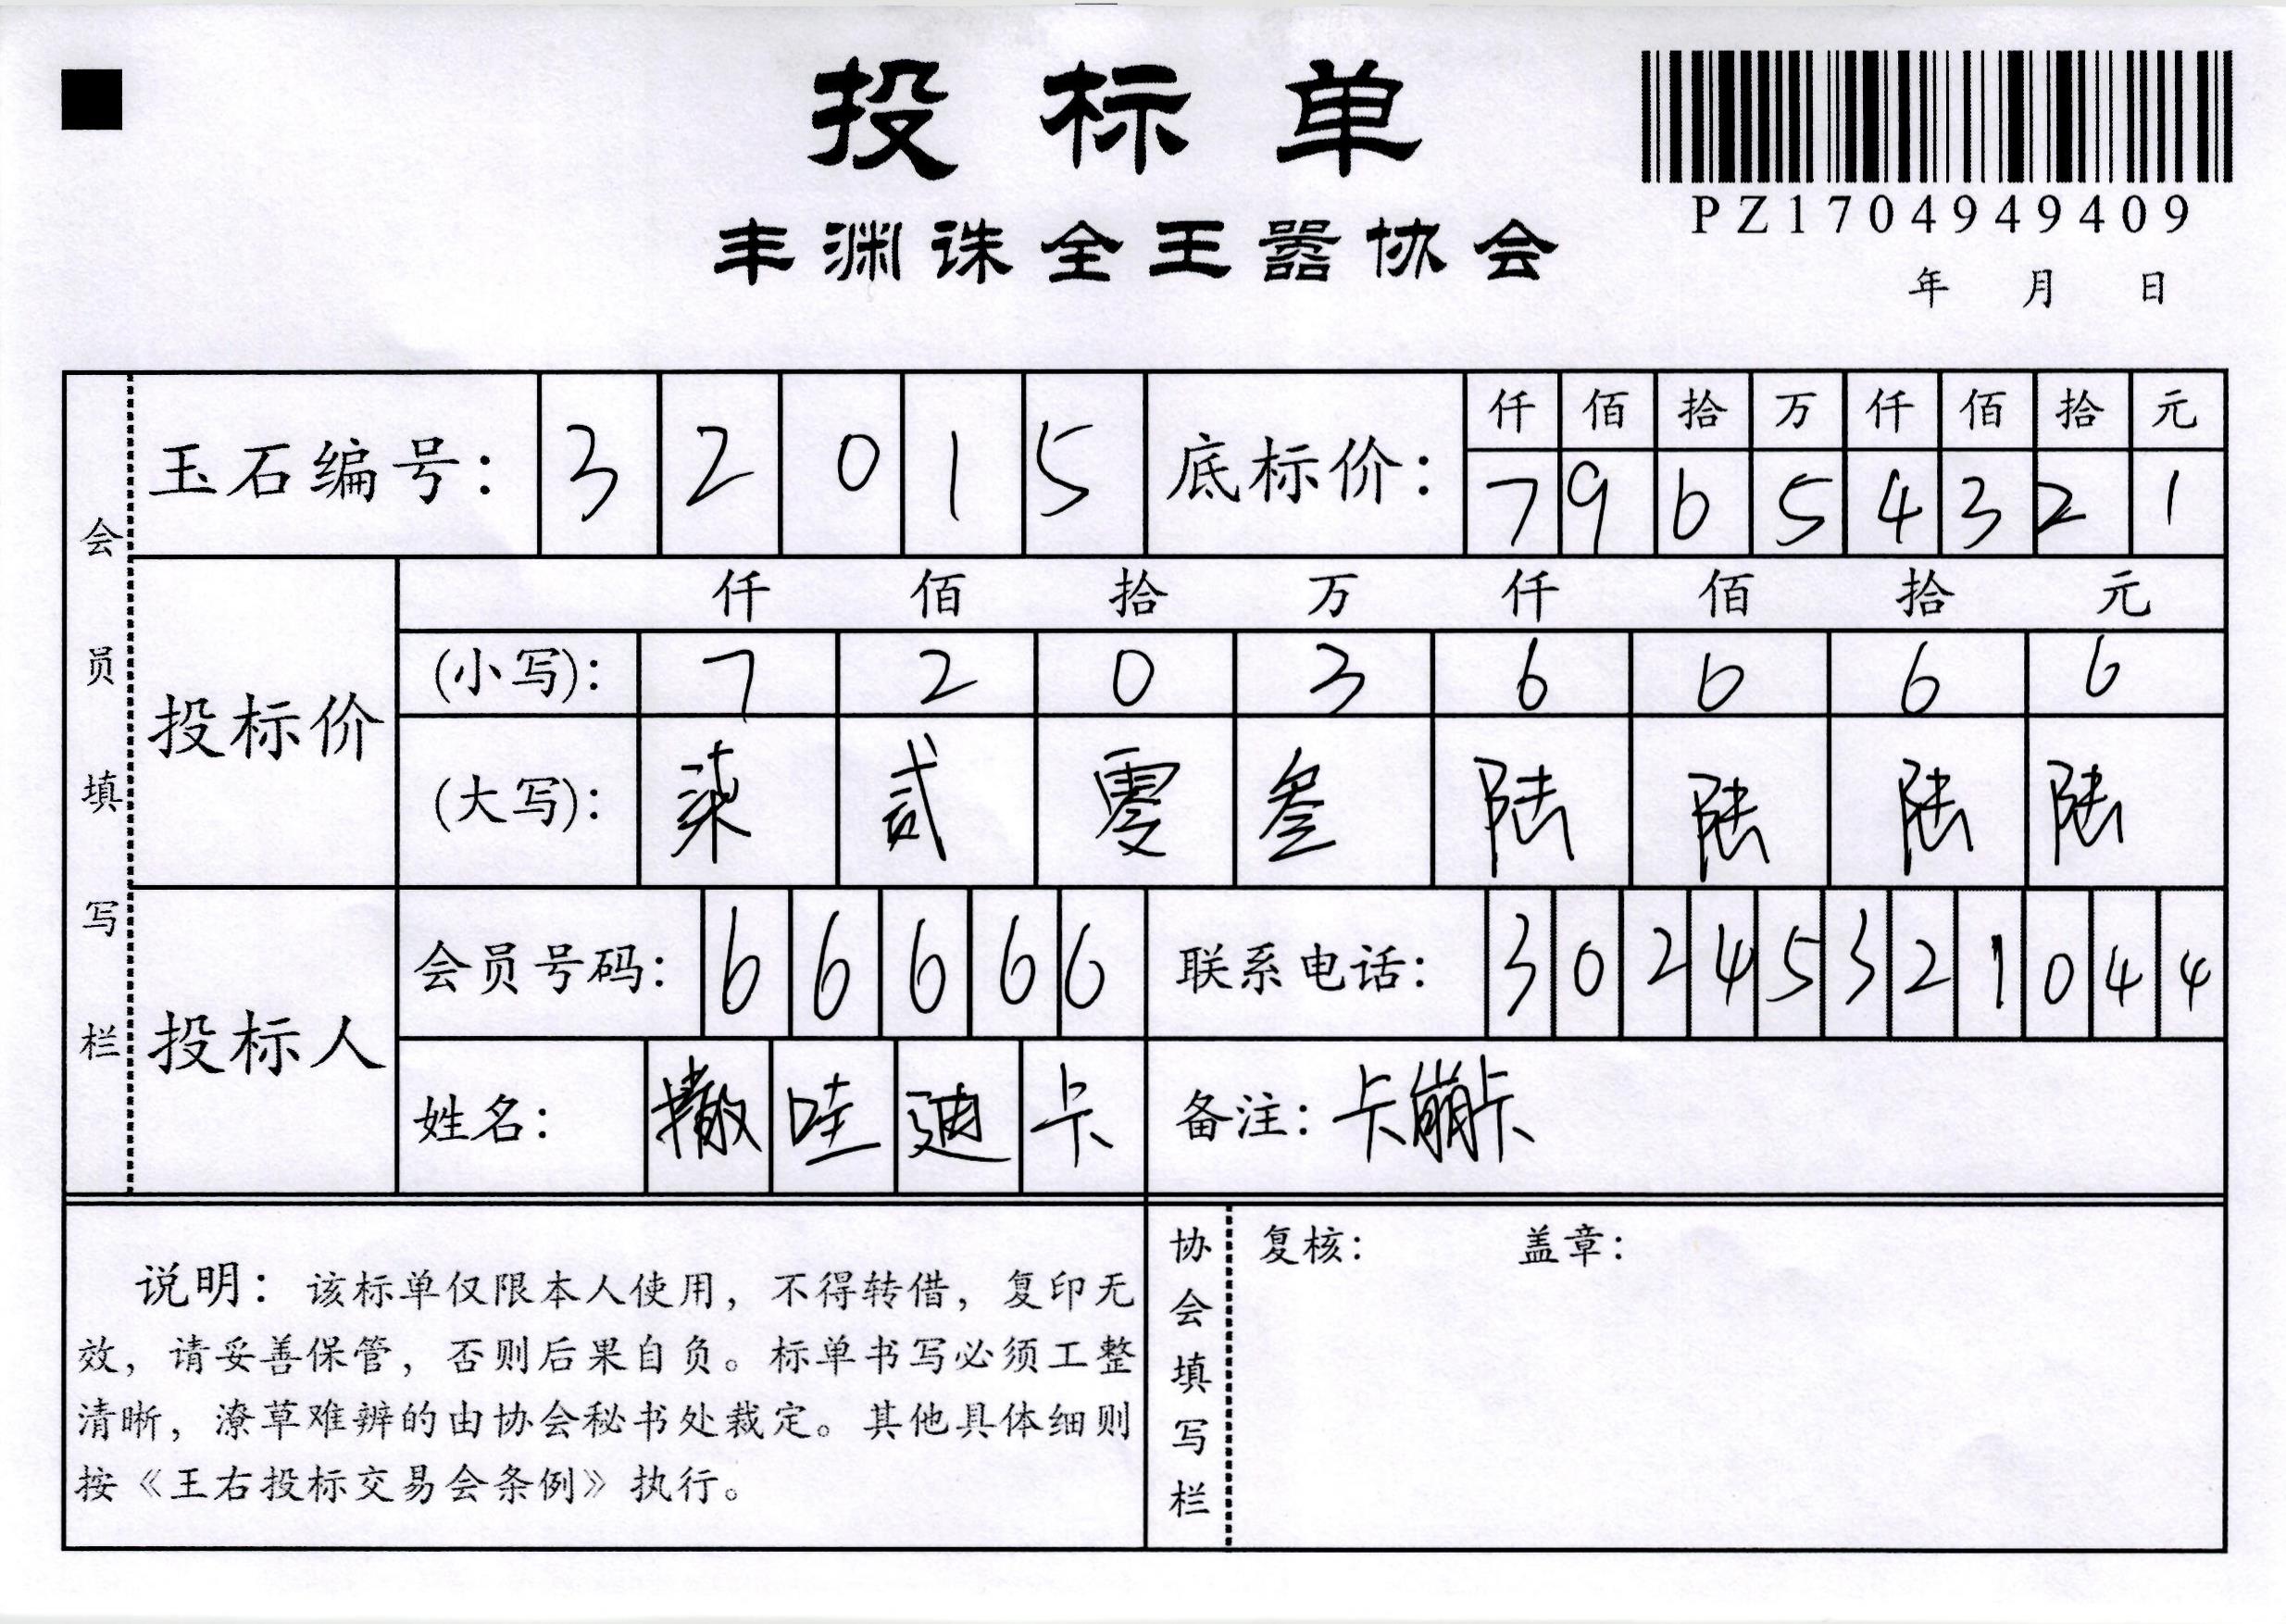 投标单
PZ1704949409
丰渊诛全王嚣协会
年 月 日
会员填写栏
玉石编号: 3 2 0 1 5
底标价: 仟 佰 拾 万 仟 佰 拾 元
7 9 6 5 4 3 2 1
投标价
仟 佰 拾 万 仟 佰 拾 元
(小写): 7 2 0 3 6 6 6 6
(大写): 柒 贰 零 叁 陆 陆 陆 陆
投标人
会员号码: 6 6 6 6 6
联系电话: 3 0 2 4 5 3 2 1 0 4 4
姓名: 撒 哇 迪 卡
备注: 卡崩卡
说明: 该标单仅限本人使用，不得转借，复印无
效，请妥善保管，否则后果自负。标单书写必须工整
清晰，潦草难辨的由协会秘书处裁定。其他具体细则
按《王右投标交易会条例》执行。
协会填写栏
复核: 盖章: